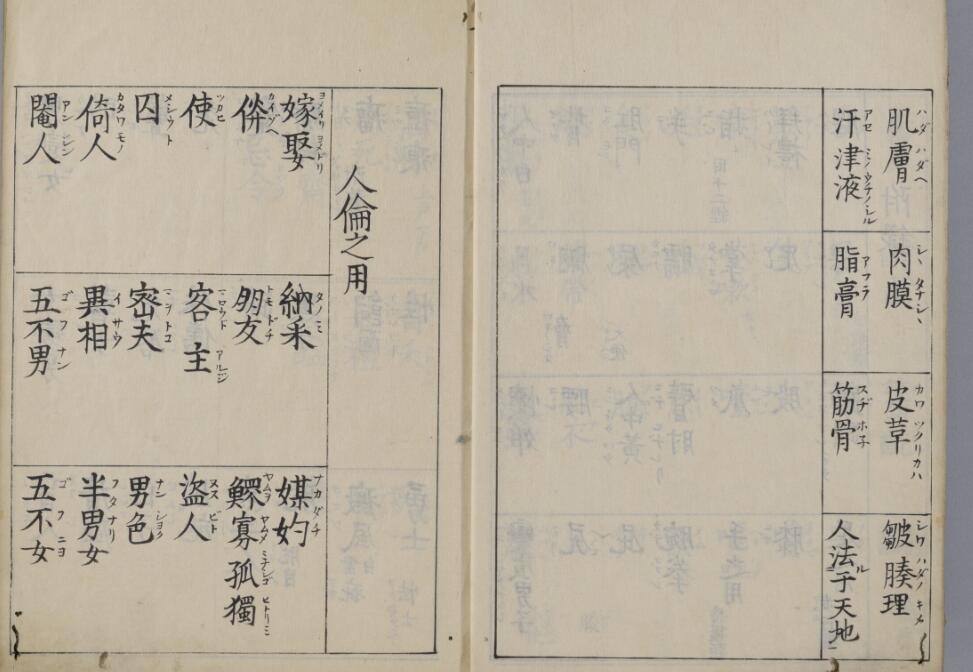 肌膚 ハダ ハダヘ
肉膜 シヽ タナシヽ
皮革 カワ ツクリカハ
皺腠理 シワ ハダノキメ
汗津液 アセ ミノウチノシル
脂膏 アフラ
筋骨 スヂ ホネ
人法于天地 ル
人倫之用
嫁娶 ヨメイリ ヨメドリ
納采 タノミ
媒妁 ナカダチ
儕 カイゾヘ
朋友 トモドチ
鰥寡孤獨 ヤムヲ ヤムメ ミナシゴ ヒトリミ
使 ツカヒ
客 主 マロウド アルジ
盜人 ヌスビト
囚 メシウト
密夫 マヲトコ
男色 ナンショク
倚人 カタワモノ
異相 イサウ
半男女 フタナリ
閹人 アンジン
五不男 ゴフナン
五不女 ゴフニヨ